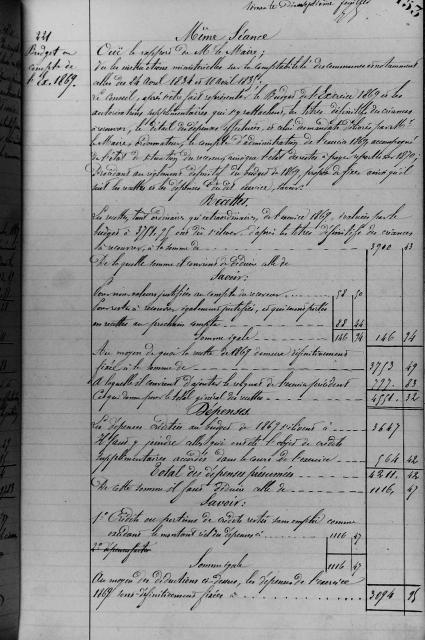 221
Budget ou
compte de
l'Ex. 1869.
Même Séance
Ouï le rapport de M. le Maire;
Vu les instructions ministérielles sur la comptabilité des communes et notamment
celles des 24 Avril 1834 et
Le Conseil, après s'être fait représenter le Budget de l'Exercice 1869 et les
autorisations supplémentaires qui s'y rattachent, les titres définitifs des créances
à recouvrer, le détail des dépenses effectuées, et celui des mandats délivrés par M.
le Maire, ordonnateur, le compte d'administration de l'exercice 1869 accompagné
de l'état de situation du receveur, ainsi que l'état des restes à payer
Procédant au règlement définitif du budget de 1869, propose de fixer ainsi qu'il
suit les recettes et les dépenses du dit exercice, savoir:
Recettes.
Les recettes, tant ordinaires qu'extraordinaires, de l'exercice 1869, évaluées par le
budget à ont dû s'élever, d'après les titres définitifs des créances
à recouvrer, à la somme de 3900 23
De laquelle somme il convient de déduire celle de
Savoir:
Pour non-valeurs justifiées au compte du receveur 58 50
Pour reste à recouvrer, également justifiés, et qui seront portés
en recettes au prochain compte 88 24
Somme égale 146 74 146 74
Au moyen de quoi la recette de 1869 demeure définitivement
fixée à la somme de 3753 49
A laquelle il convient d'ajouter le reliquat de l'exercice précédent 777 83
Ce qui donne pour le total général des recettes 4531 32
Dépenses
Les dépenses créditées au budget de 1869 s'élèvent à 3647
Il faut y joindre celles qui ont été l'objet de crédits
supplémentaires accordés dans le cours de l'exercice 564 42
Total des dépenses présumées 4211 42
De cette somme il faut déduire celle de 1116 47
Savoir:
1° Crédits ou portions de crédits restés sans emploi comme
excédant le montant réel des dépenses 1116 47
Somme égale 1116 47
Au moyen des déductions ci-dessus, les dépenses de l'exercice
1869 sont définitivement fixées à 3094 95